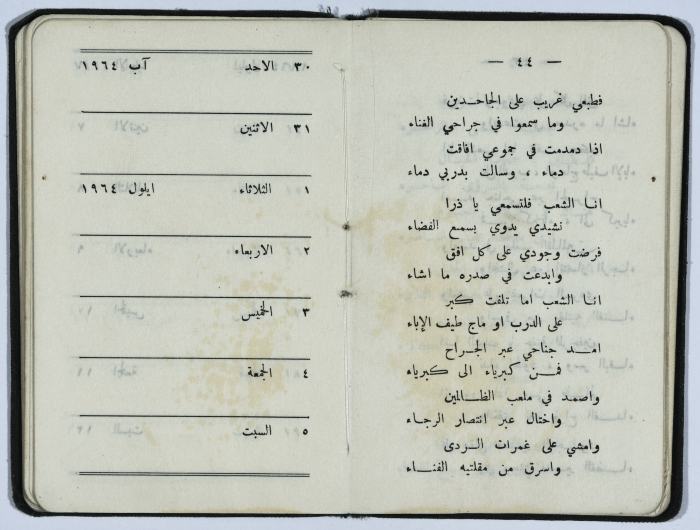 — ٤٤ —
فطبعي غريب على الجاحدين
وما سمعوا في جراحي الغناء
اذا دمدمت في جموعي افاقت
دماء ، وسالت بدربي دماء
انا الشعب فلتسمعي يا ذرا
نشيدي يدوي بسمع الفضاء
فرضت وجودي على كل افق
وابدعت في صدره ما اشاء
انا الشعب اما تلفت كبر
على الدرب او ماج طيف الإباء
امد جناحي عبر الجراح
فمن كبرياء الى كبرياء
واصمد في ملعب الظالمين
واختال عبر انتصار الرجاء
وامشي على غمرات الردى
واسرق من مقلتيه الفناء
٣٠ الاحد آب ١٩٦٤
٣١ الاثنين
١ الثلاثاء ايلول ١٩٦٤
٢ الاربعاء
٣ الخميس
٤ الجمعة
٥ السبت